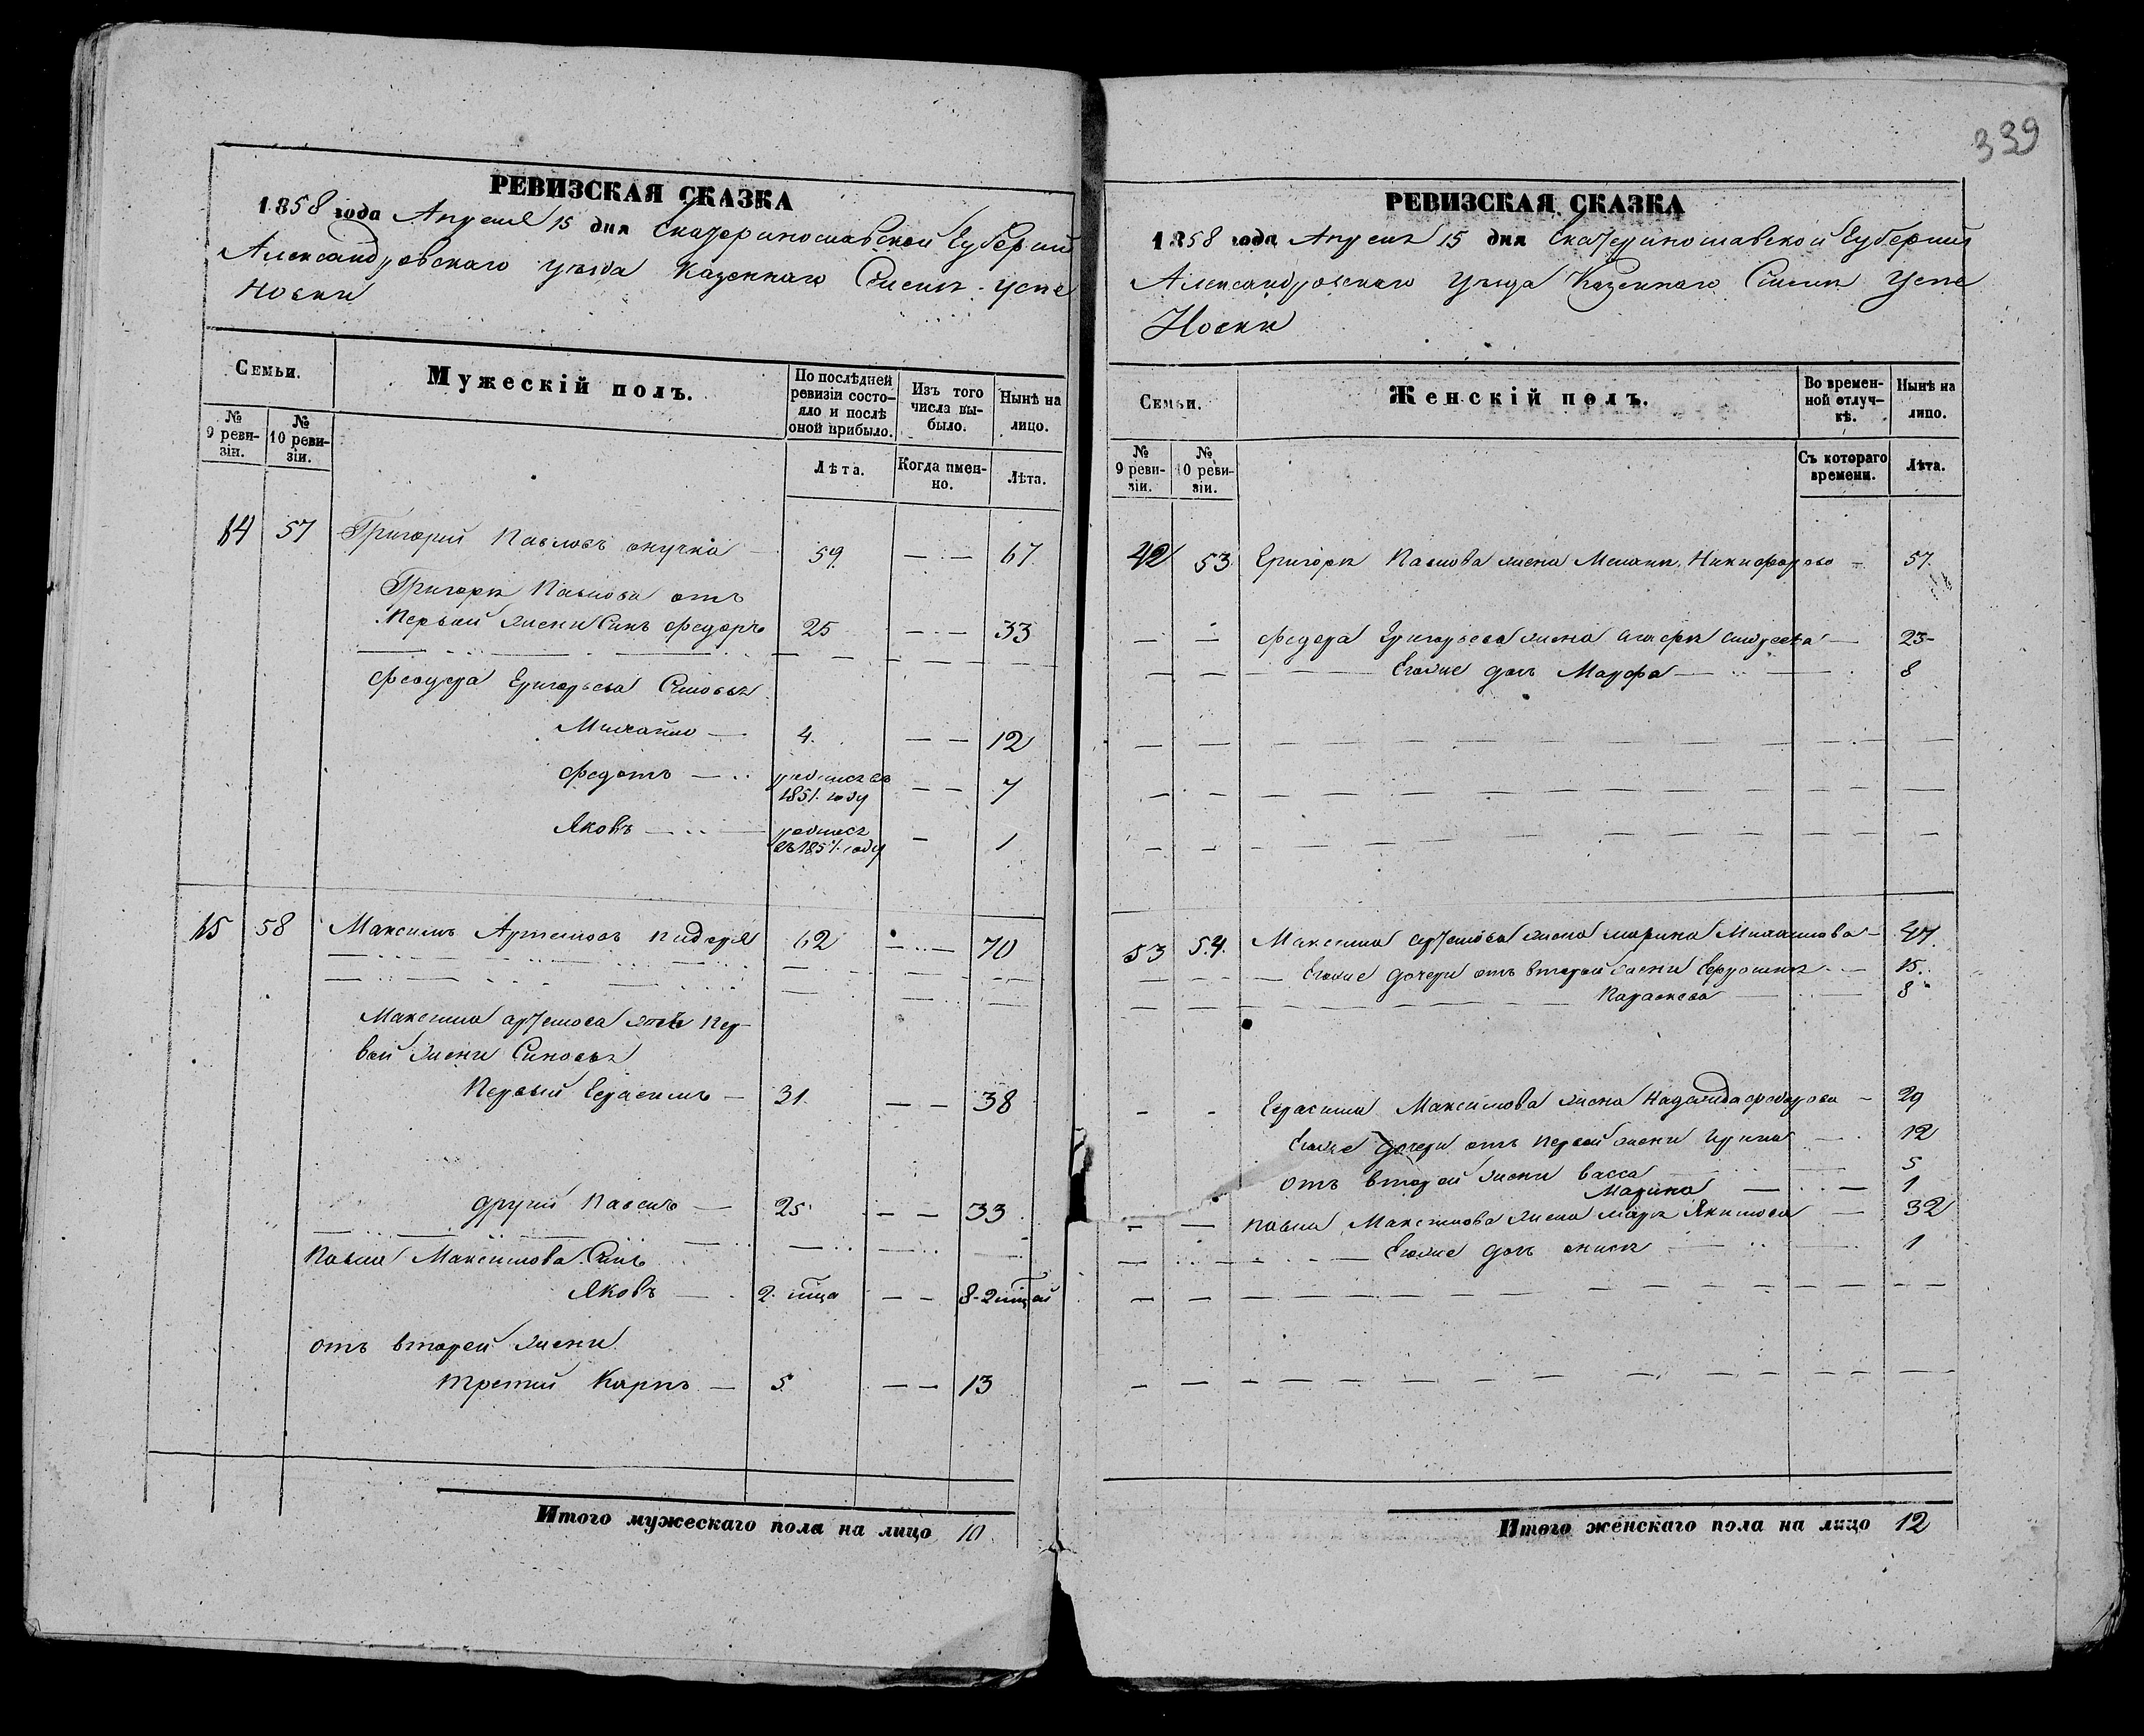 339
РЕВИЗСКАЯ СКАЗКА
1858 года Апреля 15 дня Екатеринославской Губернии
Александровскаго уезда Казеннаго Селения Успе
Новки
Семьи.
Мужескій полъ.
По послѣдней ревизіи состояло и послѣ оной прибыло.
Изъ того числа выбыло.
Нынѣ на лицо.
№ 9 ревизіи.
№ 10 ревизіи.
Лѣта.
Когда именно.
Лѣта.
14 57 Григорий Павловъ 59. — — 67
Григоря Павлова отъ
Первой жени Синъ Федоръ 25 — — 33
Федора Григорьева Синовья
Михайло — 4. — — 12
Федотъ — родился въ 1851. году — — 7
Яковъ — родился въ 1857. году — 1
15 58 Максимъ Артемовъ 62 — — 70
Максима Артемова отъ Пер-
вой жени Синовья
Первый Герасимъ — 31. — — 38
другий Павелъ — 25. — — 33
Павла Максимова Синъ
Яковъ — 2. мца — — 8-2 мцай
отъ вторей жени
третий Карпъ — 5. — — 13
Итого мужескаго пола на лицо 10
РЕВИЗСКАЯ СКАЗКА
1858 года Апреля 15 дня Екатеринославской Губернии
Александровскаго уезда Казеннаго Селения Успе
Новки
Семьи.
Женскій полъ.
Во временной отлучкѣ.
Нынѣ на лицо.
№ 9 ревизіи.
№ 10 ревизіи.
Съ котораго времени.
Лѣта.
42 53 Григоря Павлова жена Мелания Никифорова — 57.
— — Федора Григорьева жена Агафя — 23-
— — Егоже дочь Марфа — 8
53 54. Максима Артемова жена марина Михайлова — 47.
— — Егоже дочери отъ второй жени Ефросиня — 15.
— — Параскева — 8
- - Герасима Максимова жена Надежда Федорова — 29
Егоже дочери отъ первой жени Ирина — 12
отъ второй жени Васса 5
Марина — 1
— — Павла Максимова жена маря Якимова — 32
— — Егоже дочь 1
Итого женскаго пола на лицо 12